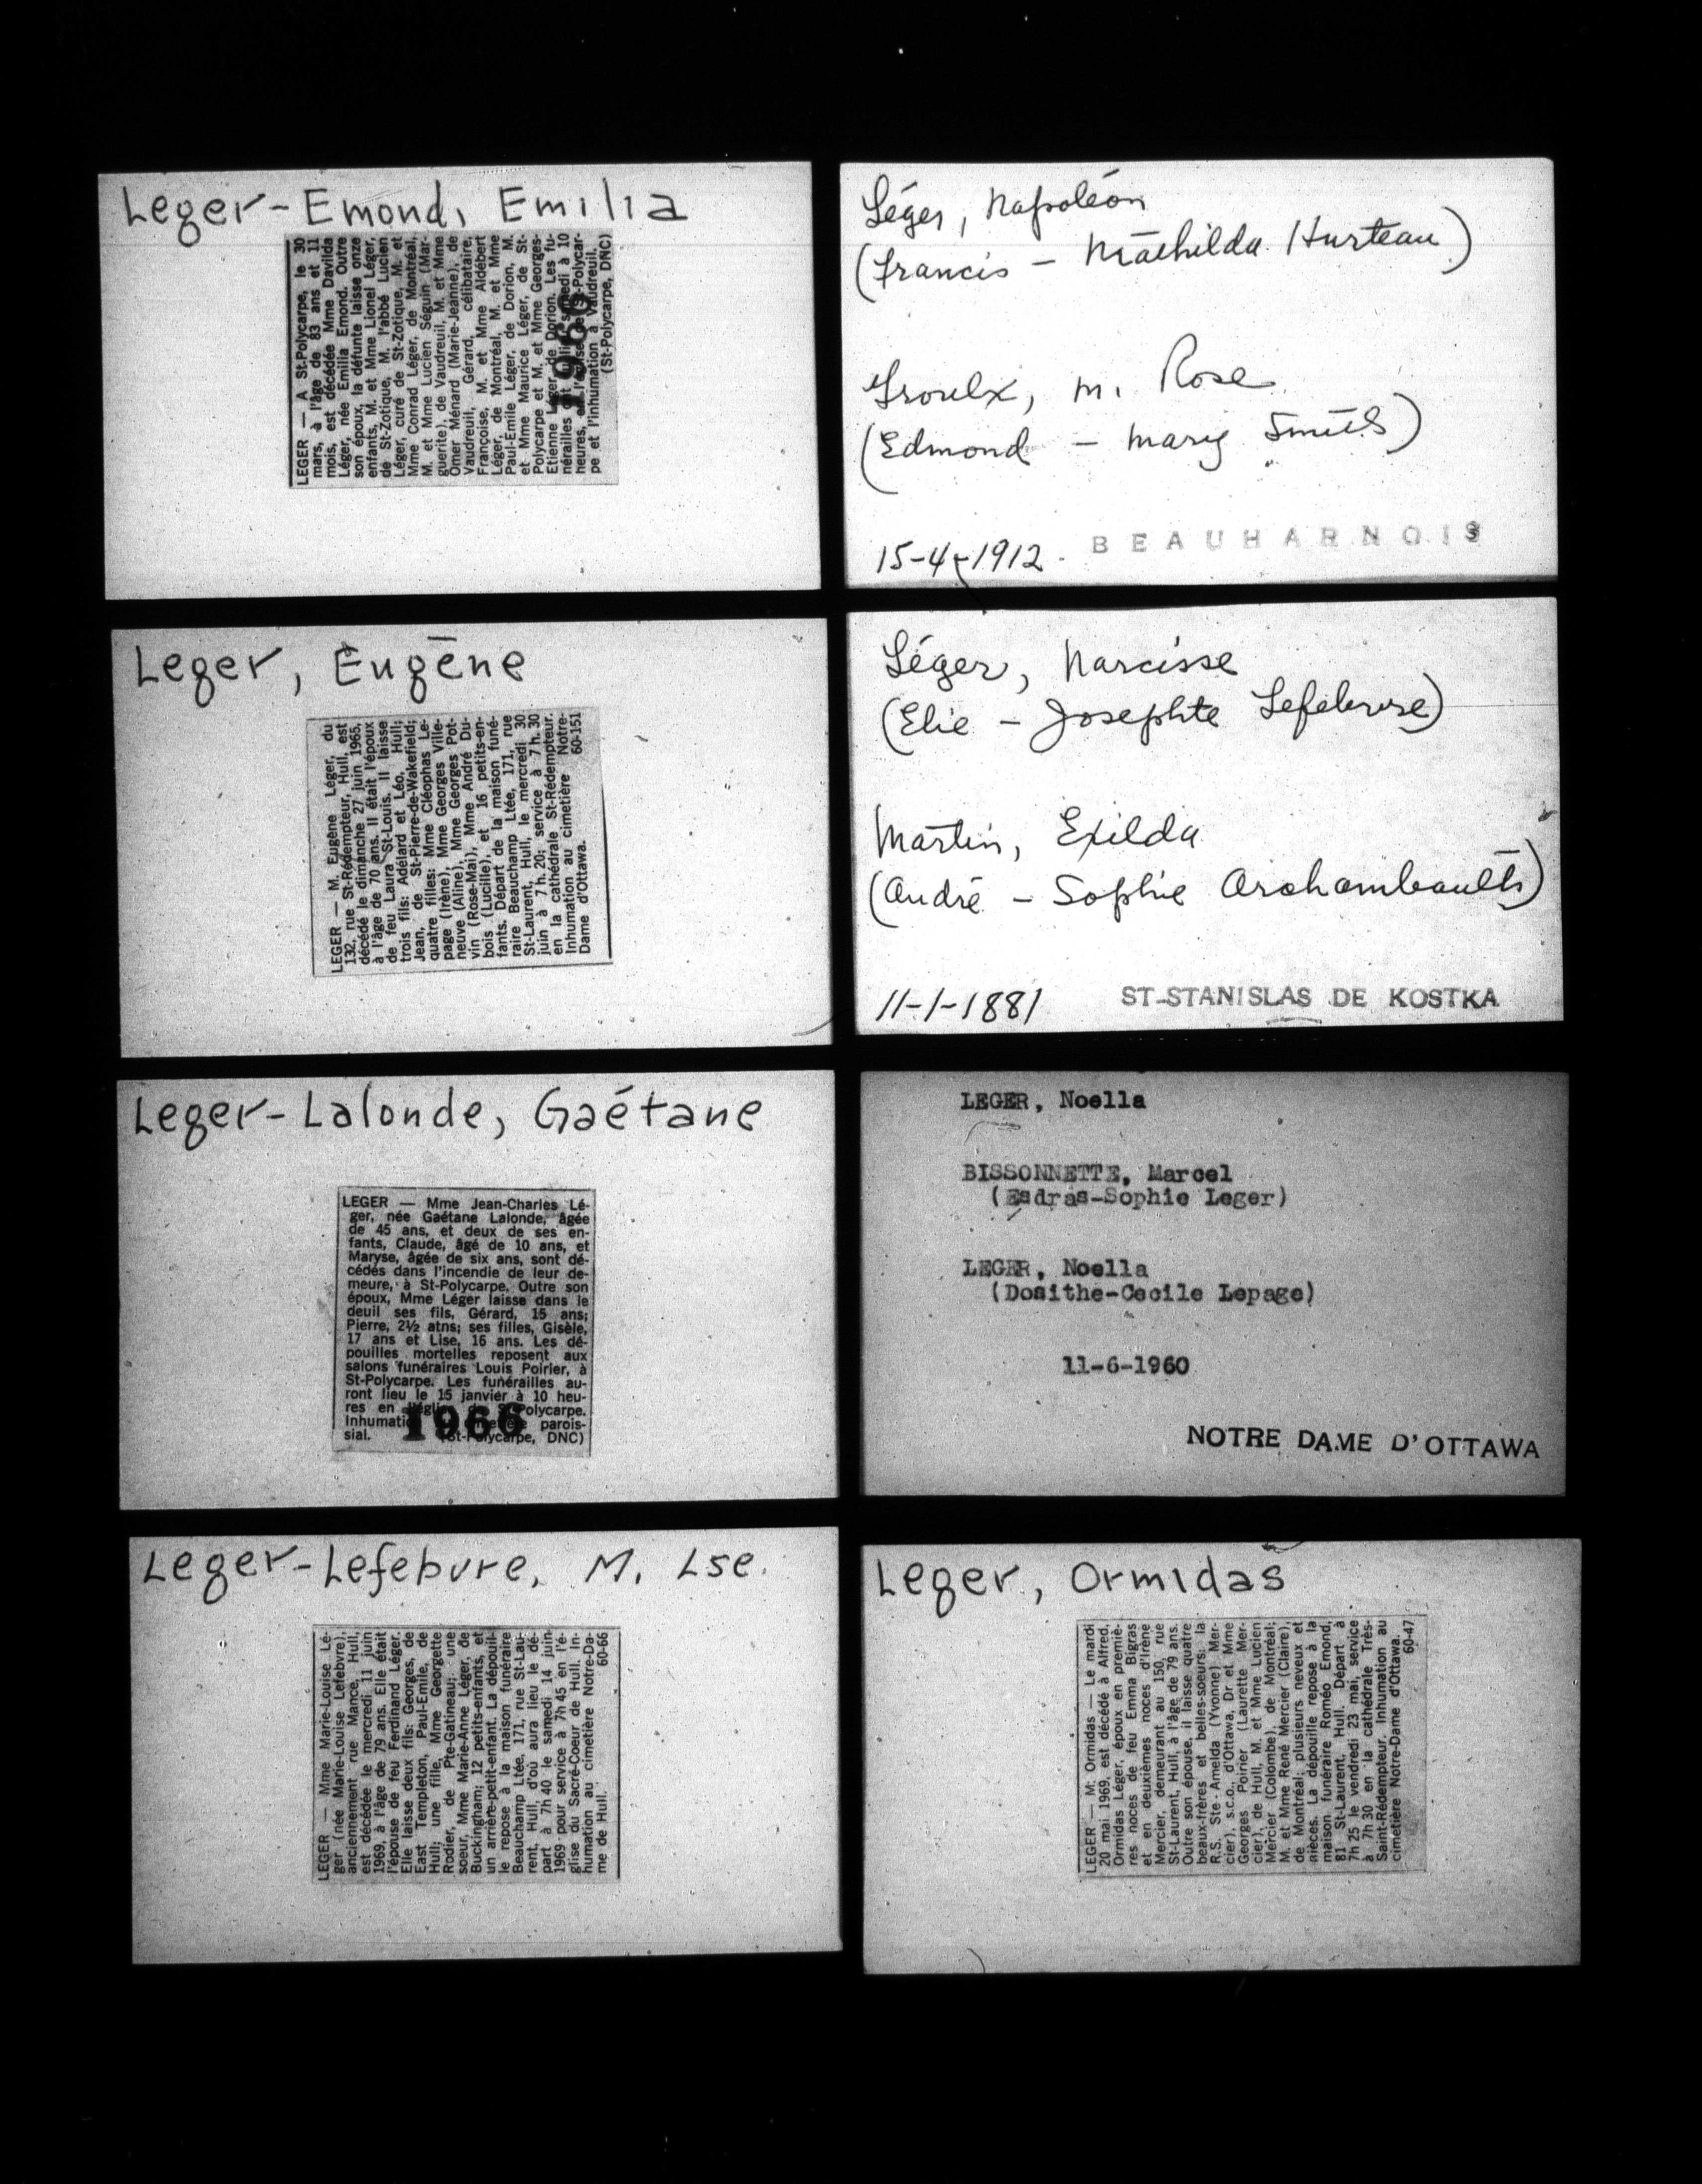 Leger-Emond, Emilia
LEGER — A St-Polycarpe, le 30
mars, à l'âge de 83 ans et 11
mois, est décédée Mme Davilda
Léger, née Emilia Emond. Outre
son époux, la défunte laisse onze
enfants, M. et Mme Lionel Léger,
de St-Zotique, M. l'abbé Lucien
Léger, curé de St-Zotique, M. et
Mme Conrad Léger, de Montréal,
M. et Mme Lucien Séguin (Mar-
guerite), de Vaudreuil, M. et Mme
Omer Ménard (Marie-Jeanne), de
Vaudreuil, Gérard, célibataire,
Françoise, M. et Mme Aldébert
Léger, de Montréal, M. et Mme
Paul-Emile Léger, de Dorion, M.
et Mme Maurice Léger, de St-
Polycarpe et M. et Mme Georges-
Etienne Léger, de Dorion. Les fu-
nérailles samedi à 10
heures, St-Polycar-
pe et l'inhumation à Vaudreuil.
(St-Polycarpe, DNC)
1966
Leger, Eugène
LEGER — M. Eugène Léger, du
132, rue St-Rédempteur, Hull, est
décédé le dimanche 27 juin 1965,
à l'âge de 70 ans. Il était l'époux
de feu Laura St-Louis. Il laisse
trois fils: Adélard et Léo, Hull;
Jean, de St-Pierre-de-Wakefield;
quatre filles: Mme Cléophas Le-
page (Irène), Mme Georges Ville-
neuve (Aline), Mme Georges Pot-
vin (Rose-Mai), Mme André Du-
bois (Lucille), et 16 petits-en-
fants. Départ de la maison funé-
raire Beauchamp Ltée, 171, rue
St-Laurent, Hull, le mercredi 30
juin à 7 h. 20; service à 7 h. 30
en la cathédrale St-Rédempteur.
Inhumation au cimetière Notre-
Dame d'Ottawa. 60-151
Leger-Lalonde, Gaétane
LEGER — Mme Jean-Charles Lé-
ger, née Gaétane Lalonde, âgée
de 45 ans, et deux de ses en-
fants, Claude, âgé de 10 ans, et
Maryse, âgée de six ans, sont dé-
cédés dans l'incendie de leur de-
meure, à St-Polycarpe. Outre son
époux, Mme Léger laisse dans le
deuil ses fils, Gérard, 15 ans;
Pierre, 2½ atns; ses filles, Gisèle,
17 ans et Lise, 16 ans. Les dé-
pouilles mortelles reposent aux
salons funéraires Louis Poirier, à
St-Polycarpe. Les funérailles au-
ront lieu le 15 janvier à 10 heu-
res en l'église de St-Polycarpe.
Inhumation cimetière parois-
sial. (St-Polycarpe, DNC)
1966
Leger-Lefebvre, M. Lse.
LEGER — Mme Marie-Louise Lé-
ger (née Marie-Louise Lefebvre),
anciennement rue Mance, Hull,
est décédée le mercredi 11 juin
1969, à l'âge de 79 ans. Elle était
l'épouse de feu Ferdinand Léger.
Elle laisse deux fils: Georges, de
East Templeton, Paul-Emile, de
Hull; une fille, Mme Georgette
Rodier, de Pte-Gatineau; une
soeur, Mme Marie-Anne Léger, de
Buckingham; 12 petits-enfants, et
un arrière-petit-enfant. La dépouil-
le repose à la maison funéraire
Beauchamp Ltée, 171, rue St-Lau-
rent, Hull, d'où aura lieu le dé-
part à 7h 40 le samedi 14 juin
1969 pour service à 7h 45 en l'é-
glise du Sacré-Coeur de Hull. In-
humation au cimetière Notre-Da-
me de Hull. 60-66
Léger, Napoléon
(Francis - Mathilda Hurteau)
Groulx, m. Rose
(Edmond - Mary Smith)
15-4-1912. BEAUHARNOIS
Léger, Narcisse
(Elie - Josephte Lefebvre)
Martin, Exilda
(André - Sophie Archambeault)
11-1-1881 ST-STANISLAS DE KOSTKA
LEGER, Noella
BISSONNETTE, Marcel
(Esdras-Sophie Leger)
LEGER, Noella
(Dosithe-Cecile Lepage)
11-6-1960
NOTRE DAME D'OTTAWA
Leger, Ormidas
LEGER — M. Ormidas — Le mardi
20 mai 1969, est décédé à Alfred,
Ormidas Léger, époux en premiè-
res noces de feu Emma Bigras
et en deuxièmes noces d'Irène
Mercier, demeurant au 150, rue
St-Laurent, Hull, à l'âge de 79 ans.
Outre son épouse, il laisse quatre
beaux-frères et belles-soeurs: la
R.S. Ste-Amelda (Yvonne) Mer-
cier), s.c.o., d'Ottawa, Dr et Mme
Georges Poirier (Laurette Mer-
cier), de Hull, M. et Mme Lucien
Mercier (Colombe), de Montréal;
M. et Mme René Mercier (Claire),
de Montréal; plusieurs neveux et
nièces. La dépouille repose à la
maison funéraire Roméo Emond,
81 St-Laurent, Hull. Départ à
7h 25 le vendredi 23 mai, service
à 7h 30 en la cathédrale Très-
Saint-Rédempteur. Inhumation au
cimetière Notre-Dame d'Ottawa.
60-47